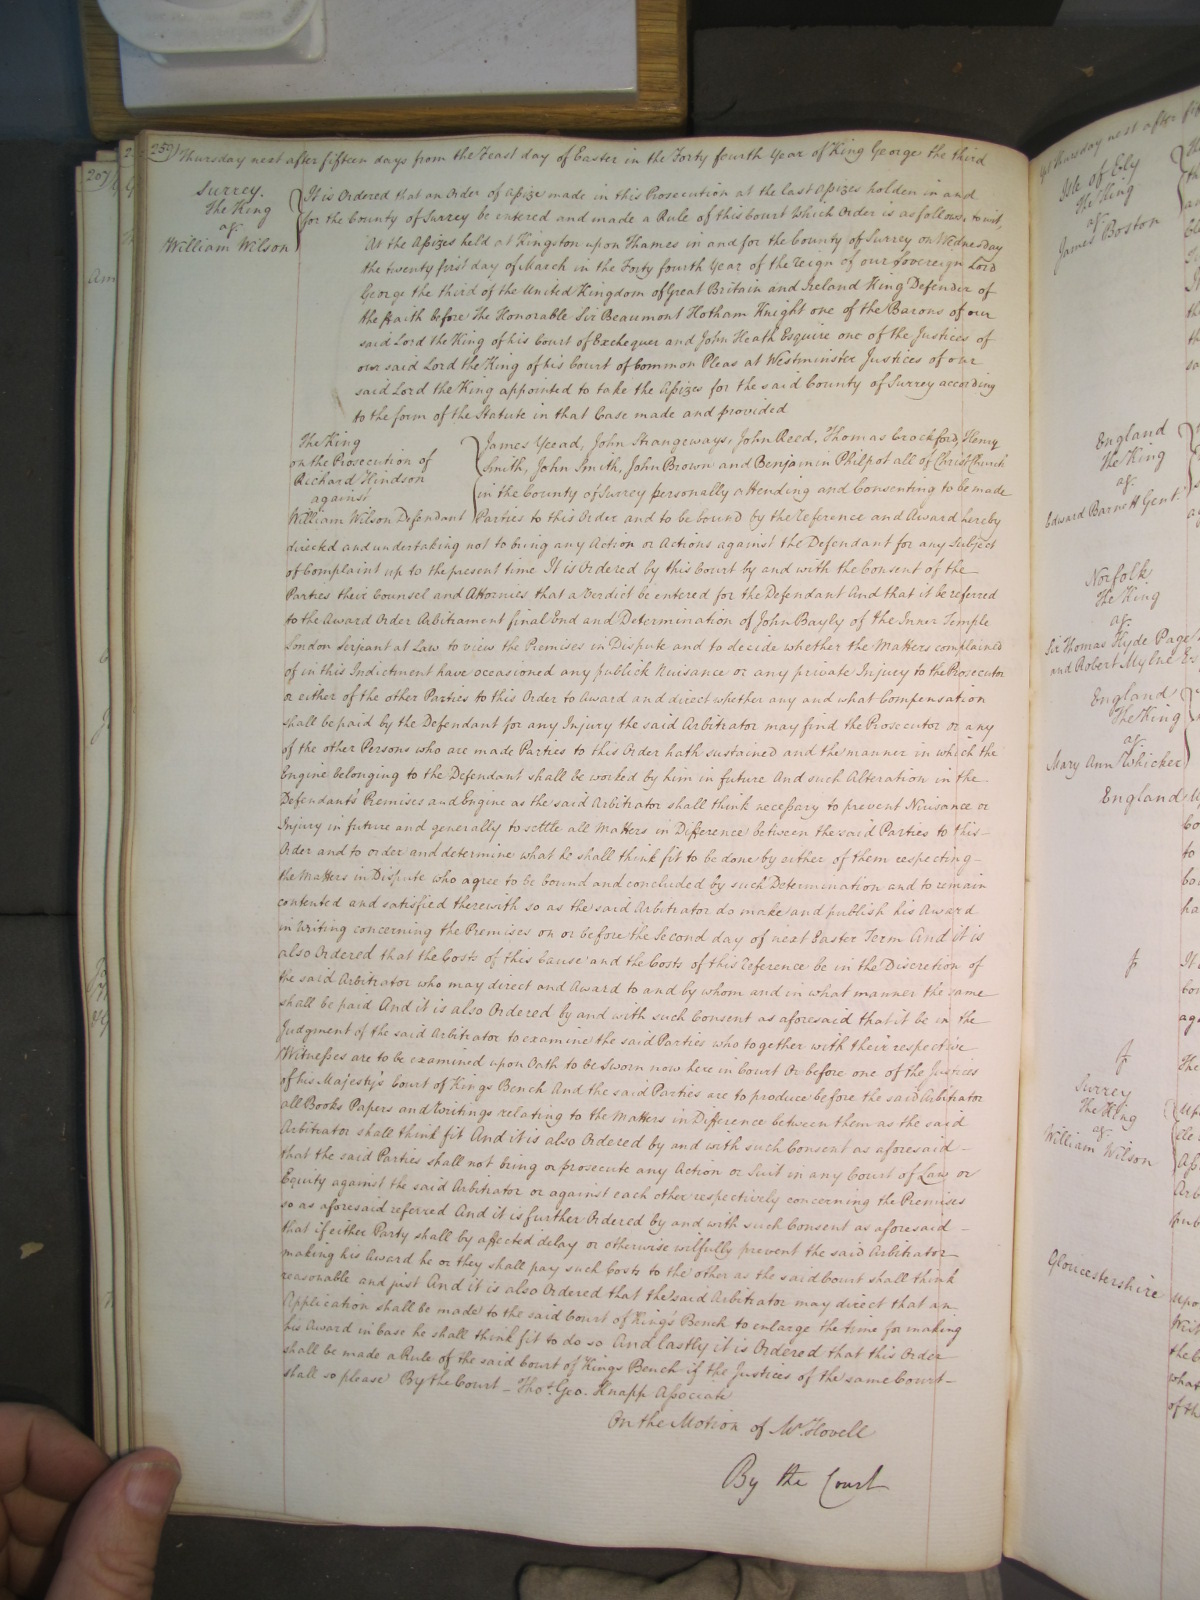 259) Thursday next after fifteen days from the Feast day of Easter in the Forty fourth Year of King George the third
Surrey.
The King
agt
William Wilson
It is Ordered that an Order of Assize made in this Prosecution at the last Assizes holden in and
for the County of Surrey be entered and made a Rule of this Court Which Order is as follows, to wit,
At the Assizes held at Kingston upon Thames in and for the County of Surrey on Wednesday
the twenty first day of March in the Forty fourth Year of the reign of our Sovereign Lord
George the third of the United Kingdom of Great Britain and Ireland King Defender of
the Faith before The Honorable Sir Beaumont Hotham Knight one of the Barons of our
said Lord the King of his Court of Exchequer and John Heath Esquire one of the Justices of
our said Lord the King of his Court of Common Pleas at Westminster Justices of our
said Lord the King appointed to take the Assizes for the said County of Surrey according
to the form of the Statute in that Case made and provided
The King
on the Prosecution of
Richard Hindson
against
William Wilson Defendant
James Yeead, John Strangeways, John Reed, Thomas Crockford, Henry
Smith, John Smith, John Brown and Benjamin Philpot all of Christ Church
in the County of Surrey personally attending and Consenting to be made
Parties to this Order and to be bound by the reference and Award hereby
directed and undertaking not to bring any Action or Actions against the Defendant for any Subject
of Complaint up to the present time It is Ordered by this Court by and with the Consent of the
Parties their Counsel and Attornies that a Verdict be entered for the Defendant And that it be referred
to the Award Order Arbitrament final End and Determination of John Bayly of the Inner Temple
London Serjeant at Law to view the Premises in Dispute and to decide whether the Matters complained
of in this Indictment have occasioned any publick Nuisance or any private Injury to the Prosecutor
or either of the other Parties to this Order to Award and direct whether any and what Compensation
shall be paid by the Defendant for any Injury the said Arbitrator may find the Prosecutor or any
of the other Persons who are made Parties to this Order hath sustained and the manner in which the
Engine belonging to the Defendant shall be worked by him in future And such Alteration in the
Defendant's Premises and Engine as the said Arbitrator shall think necessary to prevent Nuisance or
Injury in future and generally to settle all Matters in Difference between the said Parties to this
Order and to order and determine what he shall think fit to be done by either of them respecting
the Matters in Dispute who agree to be bound and concluded by such Determination and to remain
contented and satisfied therewith so as the said Arbitrator do make and publish his Award
in Writing concerning the Premises on or before the Second day of next Easter Term And it is
also Ordered that the Costs of this Cause and the Costs of this reference be in the Discretion of
the said Arbitrator who may direct and Award to and by whom and in what manner the same
shall be paid And it is also Ordered by and with such Consent as aforesaid that it be in the
Judgment of the said Arbitrator to examine the said Parties who together with their respective
Witnesses are to be examined upon Oath to be Sworn now here in Court Or before one of the Justices
of his Majesty's Court of Kings Bench And the said Parties are to produce before the said Arbitrator
all Books Papers and Writings relating to the Matters in Difference between them as the said
Arbitrator shall think fit And it is also Ordered by and with such Consent as aforesaid
that the said Parties shall not bring or prosecute any Action or Suit in any Court of Law or
Equity against the said Arbitrator or against each other respectively concerning the Premises
so as aforesaid referred And it is further Ordered by and with such Consent as aforesaid
that if either Party shall by affected delay or otherwise wilfully prevent the said Arbitrator
making his Award he or they shall pay such Costs to the other as the said Court shall think
reasonable and just And it is also Ordered that the said Arbitrator may direct that an
Application shall be made to the said Court of King's Bench to enlarge the time for making
his Award in Case he shall think fit to do so And lastly it is Ordered that this Order
shall be made a Rule of the said Court of Kings Bench if the Justices of the same Court
shall so please By the Court - Thos. Geo. Knapp Associate
On the Motion of Mr. Hovell
By the Court
Thursday next after
Isle of Ely
The King
agt
James Boston
England
The King
agt
Edward Barnett Gent.
Norfolk
The King
agt
Sir Thomas Hyde Page
and Robert Mylne
England
The King
agt
Mary Ann Whicker
England
Surrey
The King
agt
William Wilson
Gloucestershire